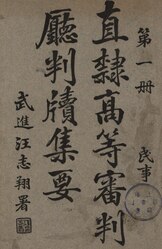 第一册
民事
直隸高等審判
廳判牘集要
武進汪志翔署